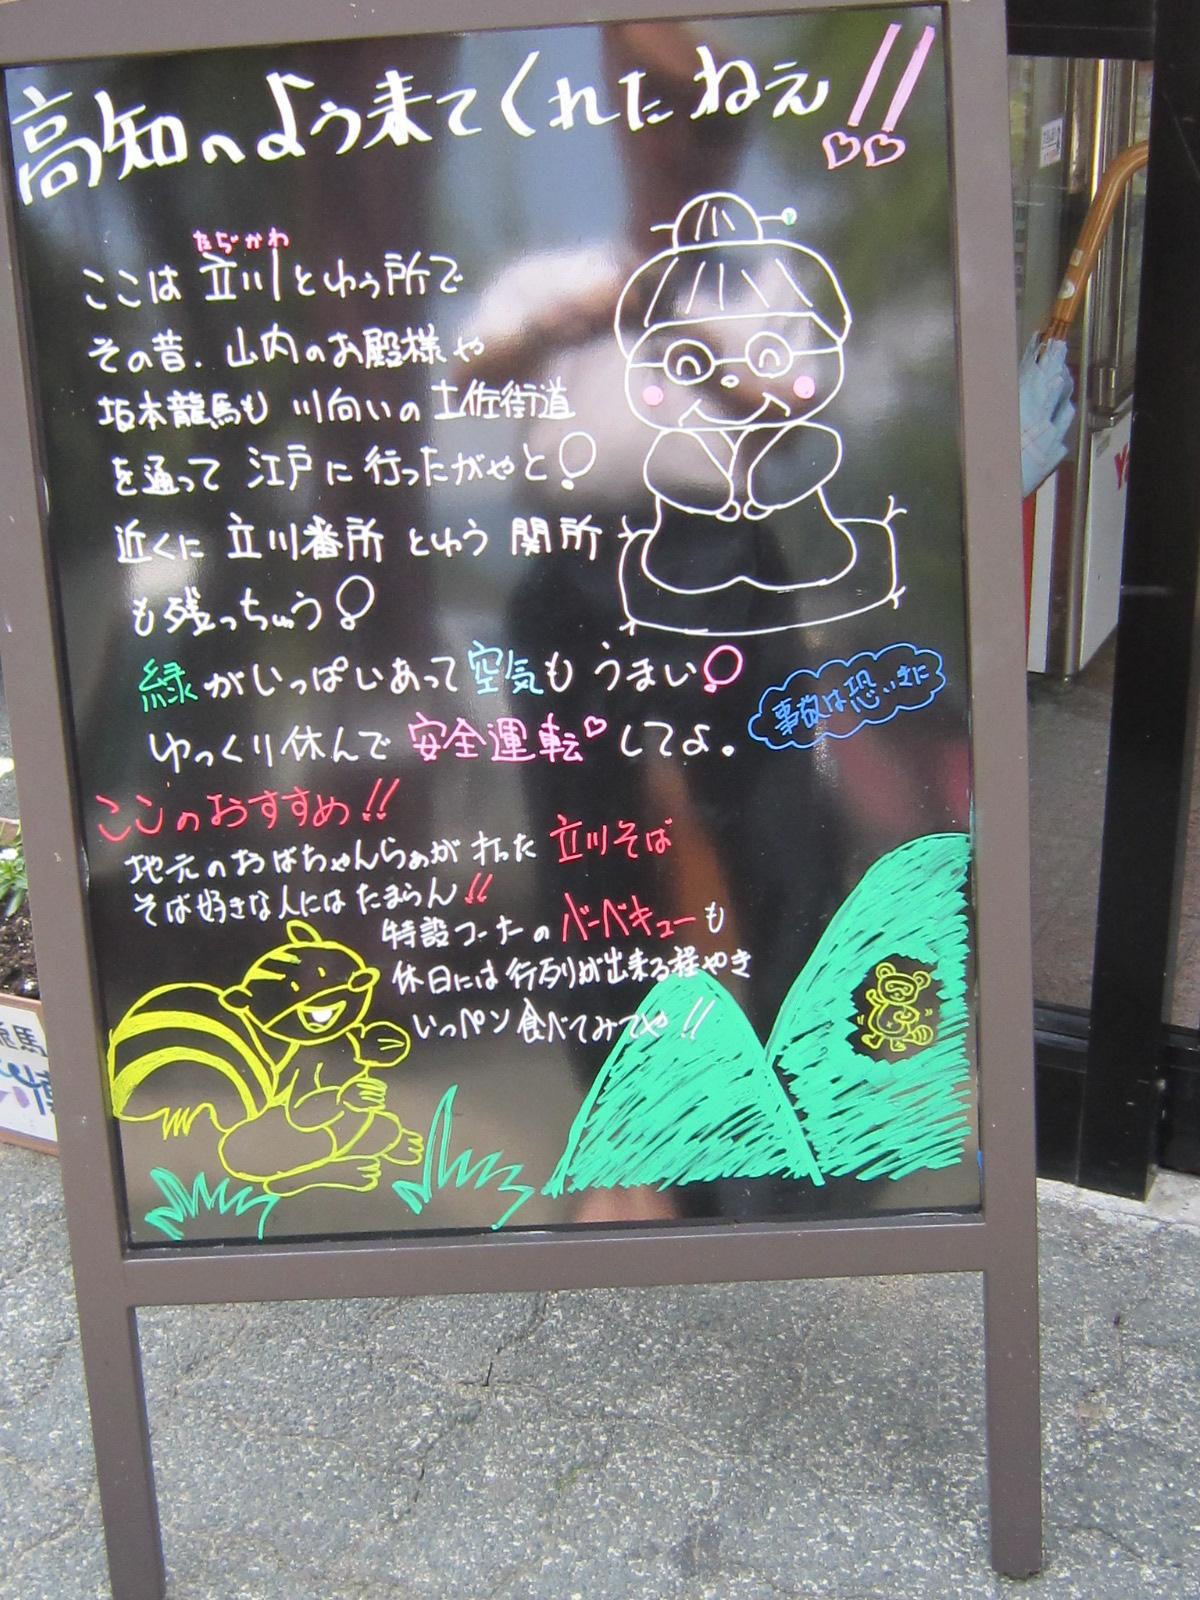 高知へよう来てくれたねぇ!!
たぢかわ
ここは立川とゆう所で
その昔、山内のお殿様や
坂本龍馬も川向いの土佐街道
を通って江戸に行ったがやと!
近くに立川番所とゆう関所
も残っちゅう!
緑がいっぱいあって空気もうまい!
事故は恐いきに
ゆっくり休んで安全運転してよ。
ここのおすすめ!!
地元のおばちゃんらぁが打った立川そば
そば好きな人にはたまらん!!
特設コーナーのバーベキューも
休日には行列が出来る程やき
いっペン食べてみてや!!
龍馬